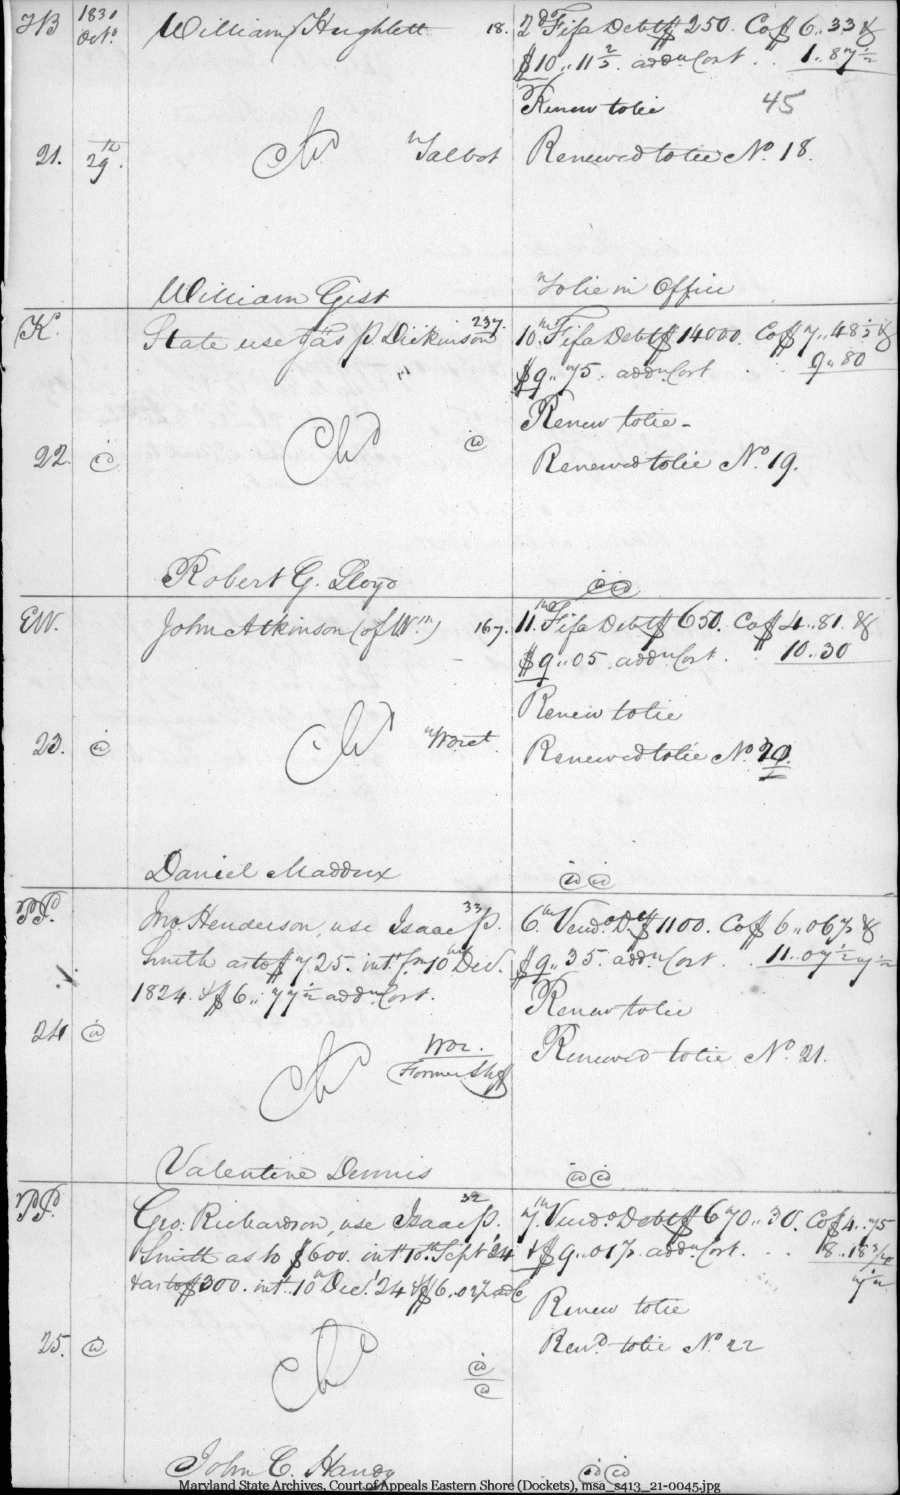 TB 1830 William Hughlett 18. 2d Fifa Debt $250. Co $6..33 &
Octr. $10..11 2/3. addnl Cost . . 1..87 1/2
Renew to lie 45
21. 29th "Talbot Renewed to lie No. 18.
William Gist To lie in Office
K. State use Jas P. Dickinson 237. 10th Fifa Debt $14000. Co $7..48 1/3 &
$9..75. addnl Cost . 9..80
Renew to lie -
22. @ @ Renewed to lie No. 19.
Robert G. Lloyd
EW. John Atkinson (of Wm.) 167. 11th Fifa Debt $650. Co $4..81. &
$9..05. addnl Cost. . 10..30
Renew to lie
23. @ "Worct. Renewed to lie No. 20.
Daniel Maddux @ @
PP. Jno. Henderson, use Isaac P. 33 6th Vendo. D $1100. Co $6..06 &
Smith as to $725. intt. fm 10th Dec. $9..35. addnl Cost . 11..07 1/2
1824. & $6..77 1/2 addnl Cost.
Renew to lie
24 @ Wor. Renewed to lie No. 21.
Former Shff
Valentine Dennis @ @
PP. Geo: Richardson, use Isaac P. 32 7th Vendo. Debt $670..30. Co $4..75
Smith as to $600. intt 10th Sept '24 & $9..01 addnl Cost. . . 8..18 3/4
& as to $300. intt. 10th Dec. '24 & $6..02
Renew to lie
25. @ @ Rend. to lie No. 22
@
John C. Handy @ @
Maryland State Archives, Court of Appeals Eastern Shore (Dockets), msa_s413_21-0045.jpg